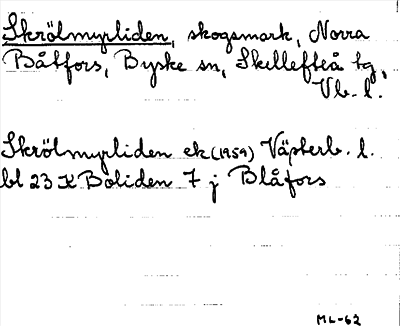 Skrölmyrliden, skogsmark, Norra
Båtfors, Byske sn, Skellefteå tg,
Vb. l.
Skrölmyrliden ek (1959) Västerb. l.
bl 23 K Boliden 7 j Blåfors
ML-62